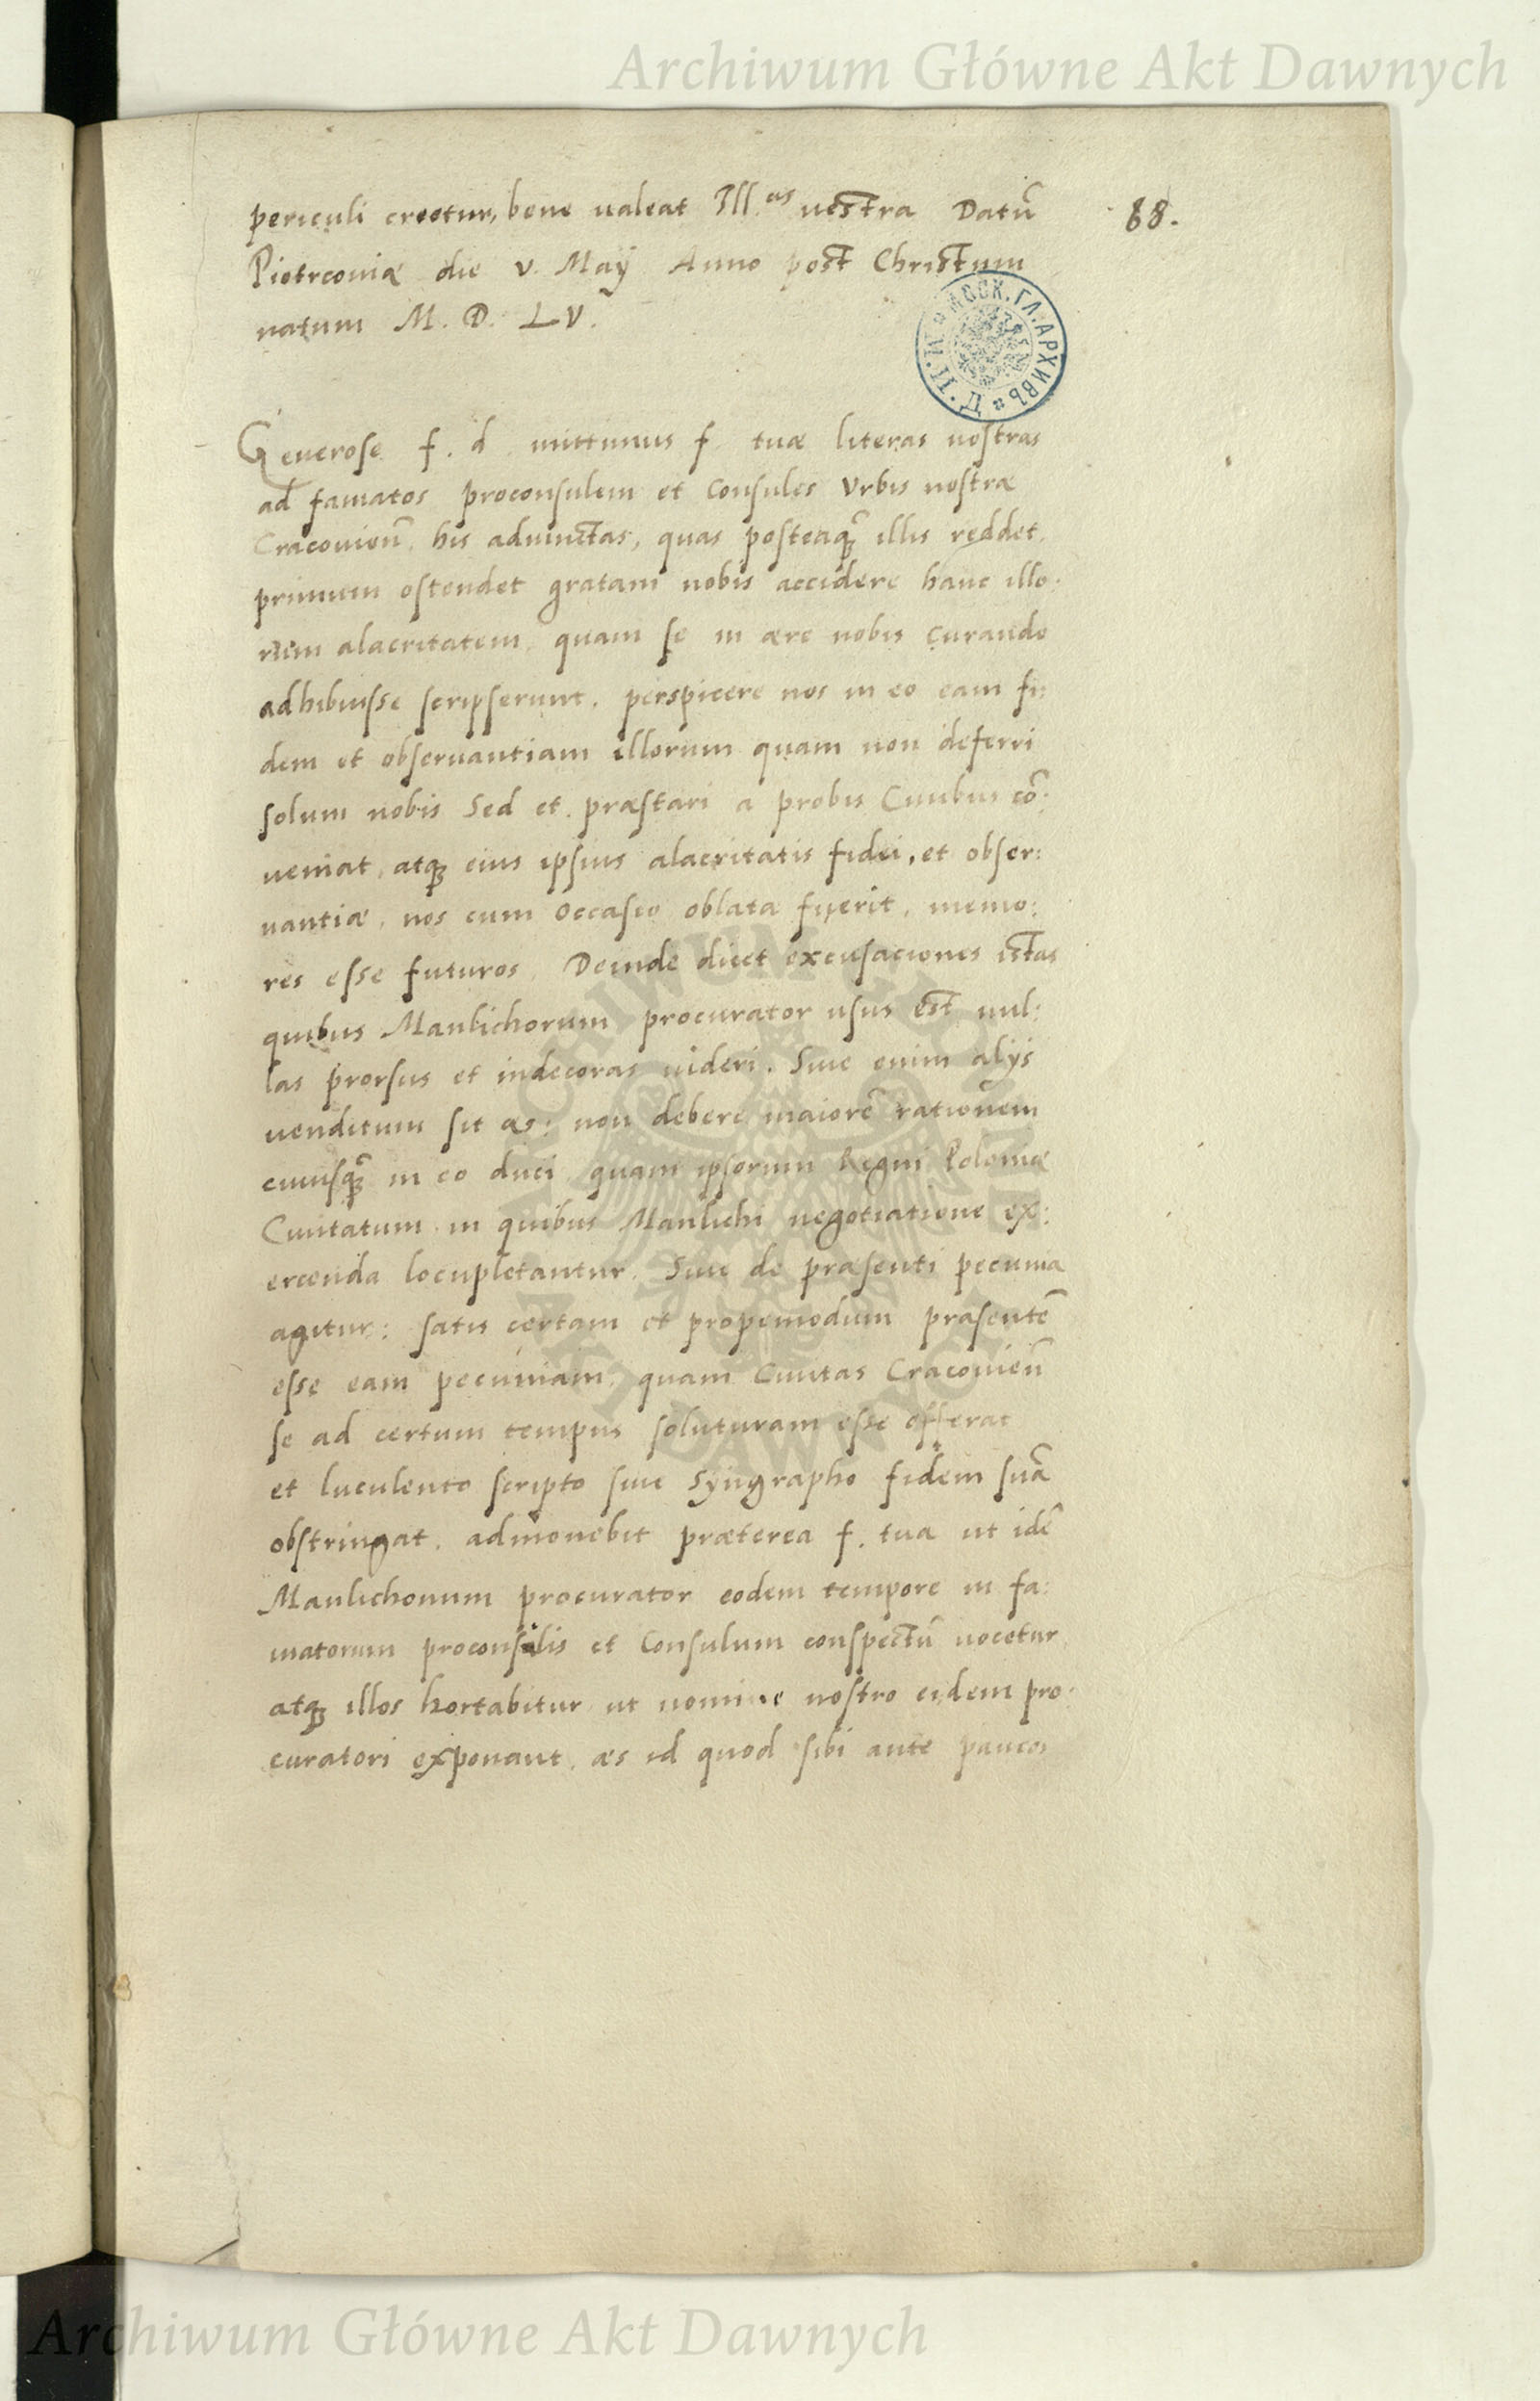 Archiwum Główne Akt Dawnych
periculi creetur, bene ualeat Ill.as uestra Datũ
88.
Piotrcouiæ die v. Maÿ Anno post Christum
natum M. D. LV.
МОСК. ГЛ. АРХИВЪ
Generose f. d. mittimus f. tuæ literas nostras
ad famatos proconsulem et Consules Vrbis nostræ
Cracouieñ. his adiunctas, quas posteaq̃ illis reddet.
primum ostendet gratam nobis accidere hanc illo:
rum alacritatem quam se in ære nobis curando
adhibuisse scripserunt. perspicere nos in eo eam fi:
dem et obseruantiam illorum quam non deferri
solum nobis Sed et præstari a probis Ciuibus cõ:
ueniat, atq; eius ipsius alacritatis fidei, et obser:
uantiæ, nos cum occasio oblata fuerit, memo:
res esse futuros. Deinde dicet excusaciones istas
quibus Manlichorum procurator usus est nul:
las prorsus et indecoras uideri. Siue enim alijs
uenditum sit æs: non debere maiorẽ rationem
cuiusq̃ in eo duci quam ipsorum Regni Poloniæ
Ciuitatum in quibus Manlichi negotiatione ex:
ercenda locupletantur. Siue de præsenti pecunia
agitur: satis certam et propemodum præsentẽ
esse eam pecuniam, quam Ciuitas Cracouieñ
se ad certum tempus soluturam esse offerat
et luculento scripto siue Syngrapho fidem suã
obstringat. admonebit præterea f. tua ut idẽ
Manlichonum procurator eodem tempore in fa:
matorum proconsulis et Consulum conspectũ uocetur
atq; illos hortabitur ut nomine nostro eidem pro:
curatori exponant. æs id quod sibi ante paucos
Archiwum Główne Akt Dawnych